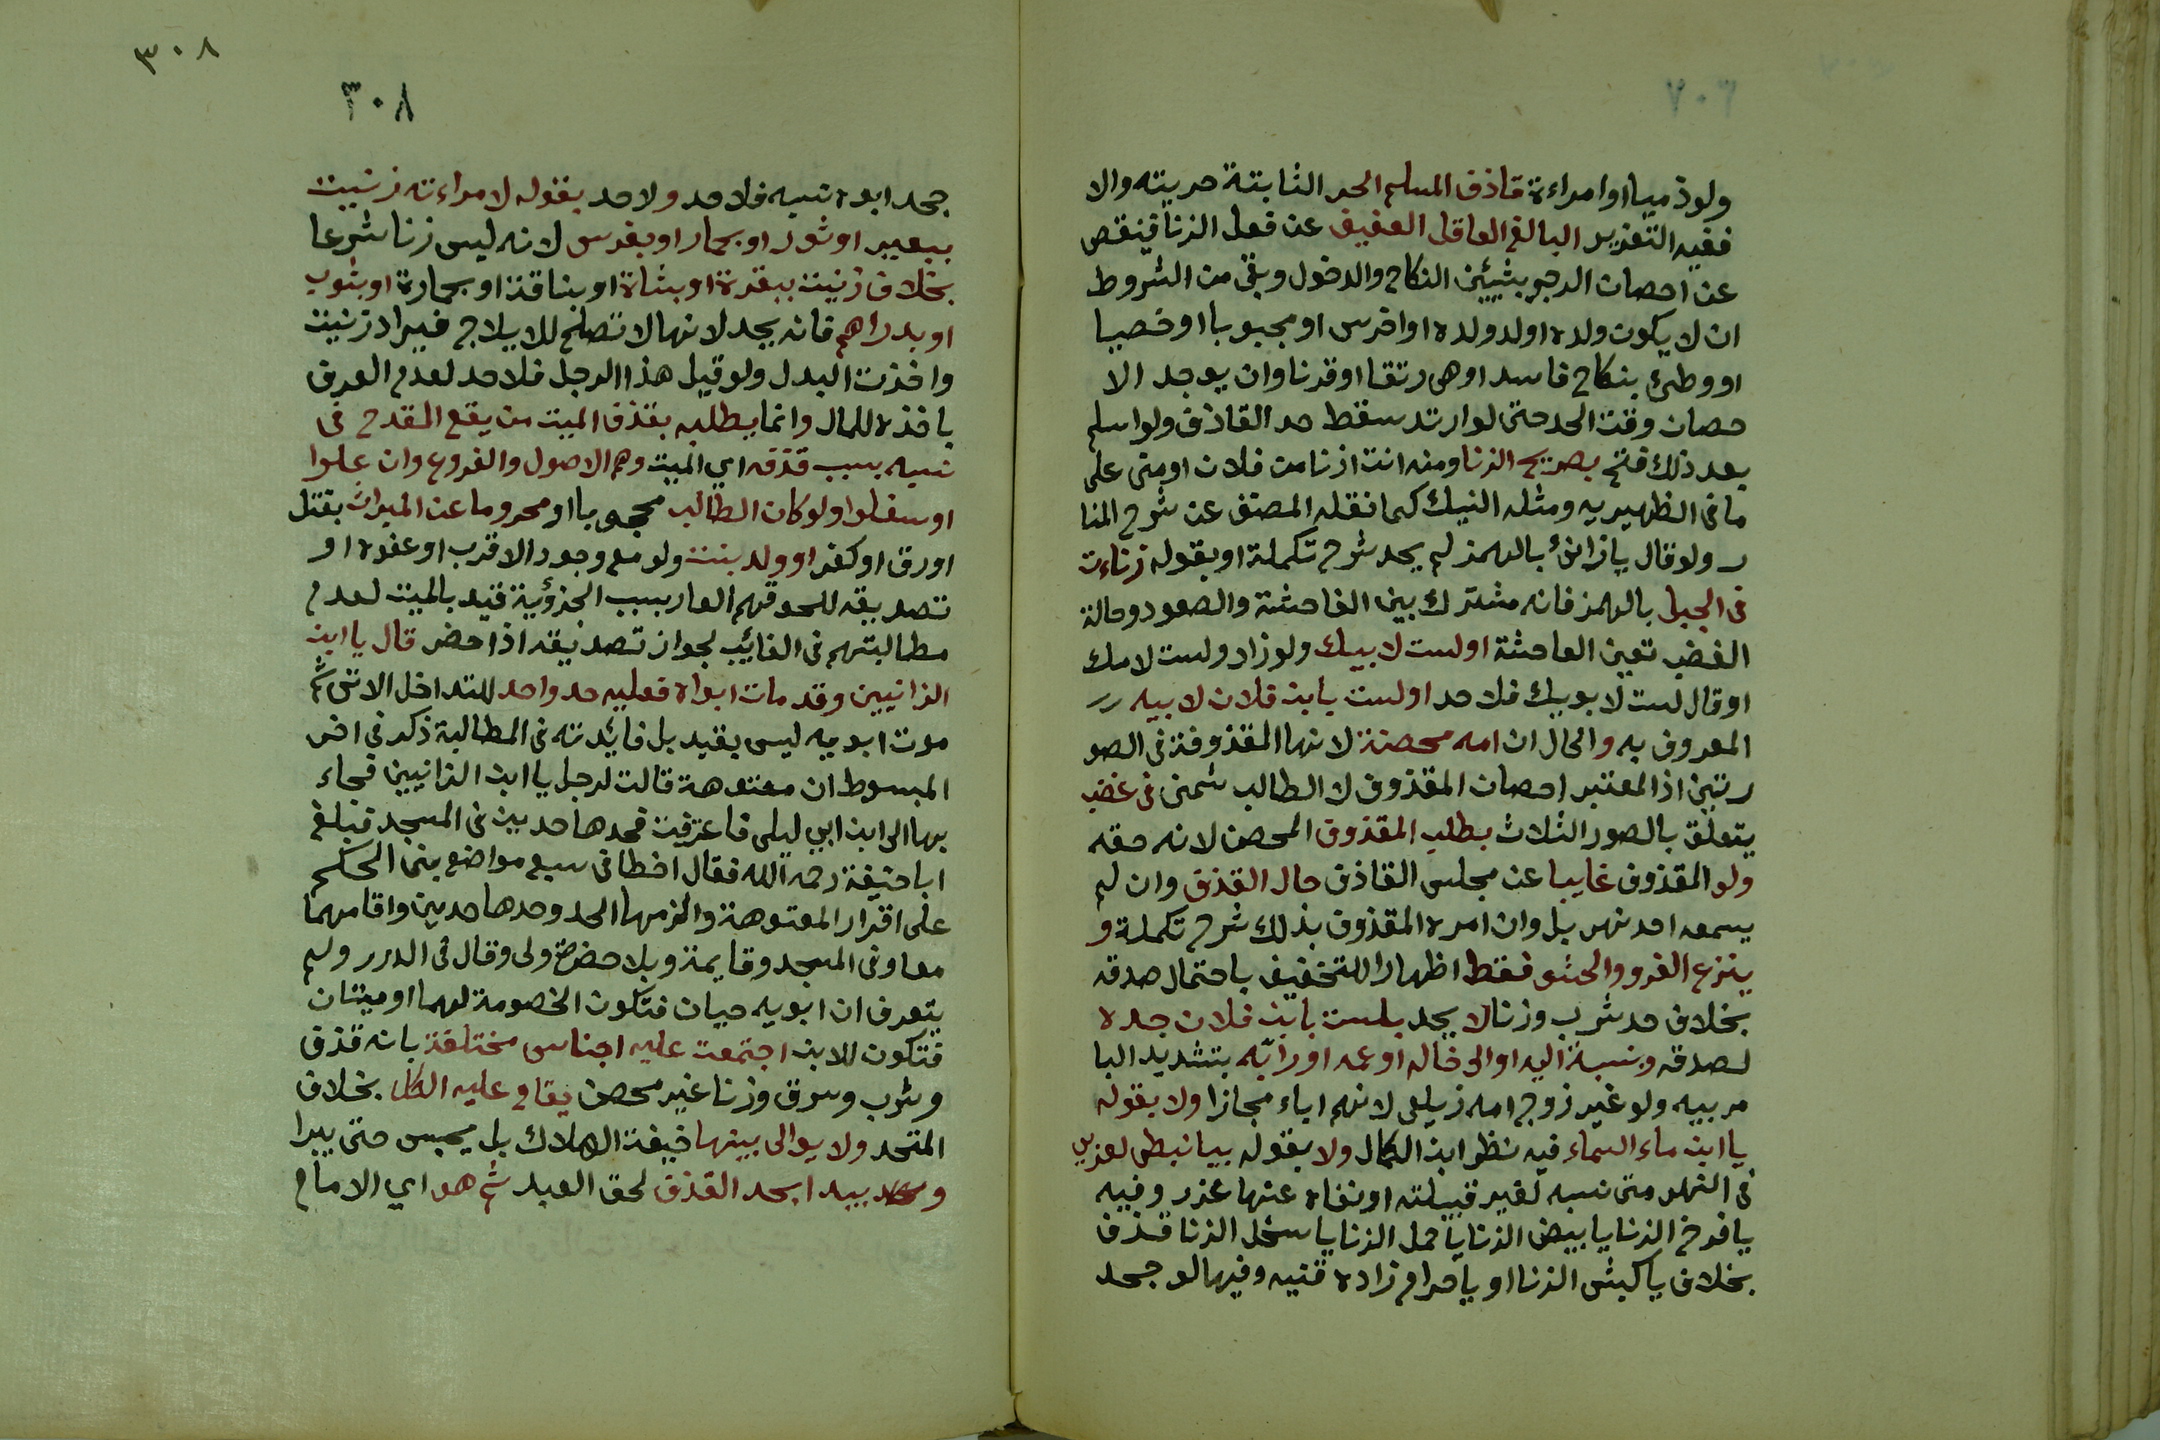 ولوذميا او امراءة قاذف المسلم الحر الثابتة حريته والا
ففيه التعزير البالغ العاقل العفيف عن فعل الزنا فينقص
عن احصان الرجم بشيئين النكاح والدخول وبقي من الشروط
ان لا يكون ولده اولد ولده او اخرس او مجبوبا او خصيا
او وطئ بنكاح فاسد او هى رتقا او قرنا وان يوجد الا
حصان وقت الحد حتى لو ارتد سقط حد القاذف ولو اسلم
بعد ذلك فتح بصريح الزنا ومنه انت ازنا من فلان او منى على
ما فى الظهيريه ومثله النيك كما نقله المصنف عن شرح المنا
ر ولو قال يا زانئ بالهمز لم يحد شرح تكملة او بقوله زناءت
فى الجبل بالهمز فانه مشترك بين الفاحشة والصعود وحالة
الغضب تعين الفاحشة او لست لابيك ولو زاد ولست لامك
او قال لست لابويك فلا حد او لست يابن فلان لابيه رر
المعروف به والحال ان امه محصنة لانها المقذوفة فى الصو
رتين اذ المعتبر احصان المقذوف لا الطالب شمنى فى غضب
يتعلق بالصور الثلاث بطلب المقذوف المحصن لانه حقه
ولو المقذوف غايبا عن مجلس القاذف حال القذف وان لم
يسمعه احد نهر بل وان امره المقذوف بذلك شرح تكملة و
ينزع الفرو والحشو فقط اظهارا للتخفيف باحتمال صدقه
بخلاف حد شرب وزنا لا يحد بلست بابن فلان جده
لصدقه وبنسبة اليه او الى خاله او عمه او رابّه بتشديد البا
مربيه ولو غير زوج امه زيلعى لانهم اباء مجازا ولا بقوله
يا ابن ماء السماء فيه نظر ابن الكمال ولا بقوله بيا نبطى لعربى
فى النهر متى نسبه لغير قبيلته او نفاه عنها عزر وفيه
يا فرخ الزنا يا بيض الزنا يا حمل الزنا يا سخل الزنا قذف
بخلاف يا كبش الزنا او يا حرام زاده قنيه وفيها لو جحد
٣٠٨
٣٠٨
جحد ابوه نسبه فلا حد ولا حد بقوله لامراءته زنيت
ببعير او ثور او بحمار او بفرس لانه ليس زنا شرعا
بخلاف زنيت ببقرة او بشاة او بناقة او بحمارة او بثوب
او بدراهم فانه يحد لانها لا تصلح للايلاج فيراد زنيت
واخذت البدل ولو قيل هذا الرجل فلا حد لعدم العرف
باخذه للمال وانما يطلبه بقذف الميت من يقع القدح فى
نسبه بسبب قذفه اي الميت وهم الاصول والفروع وان علوا
او سفلوا ولو كان الطالب محجوبا او محروما عن الميراث بقتل
او رق او كفر او ولد بنت ولو مع وجود الاقرب او عفوه او
تصديقه للحوقهم العار بسبب الجزؤية قيد بالميت لعدم
مطالبتهم فى الغائب لجواز تصديقه اذا حضر قال يا ابن
الزانيين وقد مات ابواه فعليه حد واحد للتداخل الاتى ثم
موت ابويه ليس بقيد بل فائدته فى المطالبة ذكر فى اخر
المبسوط ان معتوهة قالت لرجل يا ابن الزانيين فجاء
بها الى ابن ابي ليلى فاعترفت فحدها حدين فى المسجد فبلغ
ابا حنيفة رحمه الله فقال اخطا فى سبع مواضع بنى الحكم
على اقرار المعتوهة والزمها الحد وحدها حدين واقامهما
معا وفى المسجد وقايمة وبلا حضرة ولى وقال فى الدرر ولم
يتعرف ان ابويه حيان فتكون الخصومة لهما او ميتان
فتكون للابن اجتمعت عليه اجناس مختلفة بانه قذف
وشرب وسرق وزنا غير محصن يقام عليه الكل بخلاف
المتحد ولا يوالى بينها خيفة الهلاك بل يحبس حتى يبرا
و يبدا بحد القذف لحق العبد ثم هو اي الامام